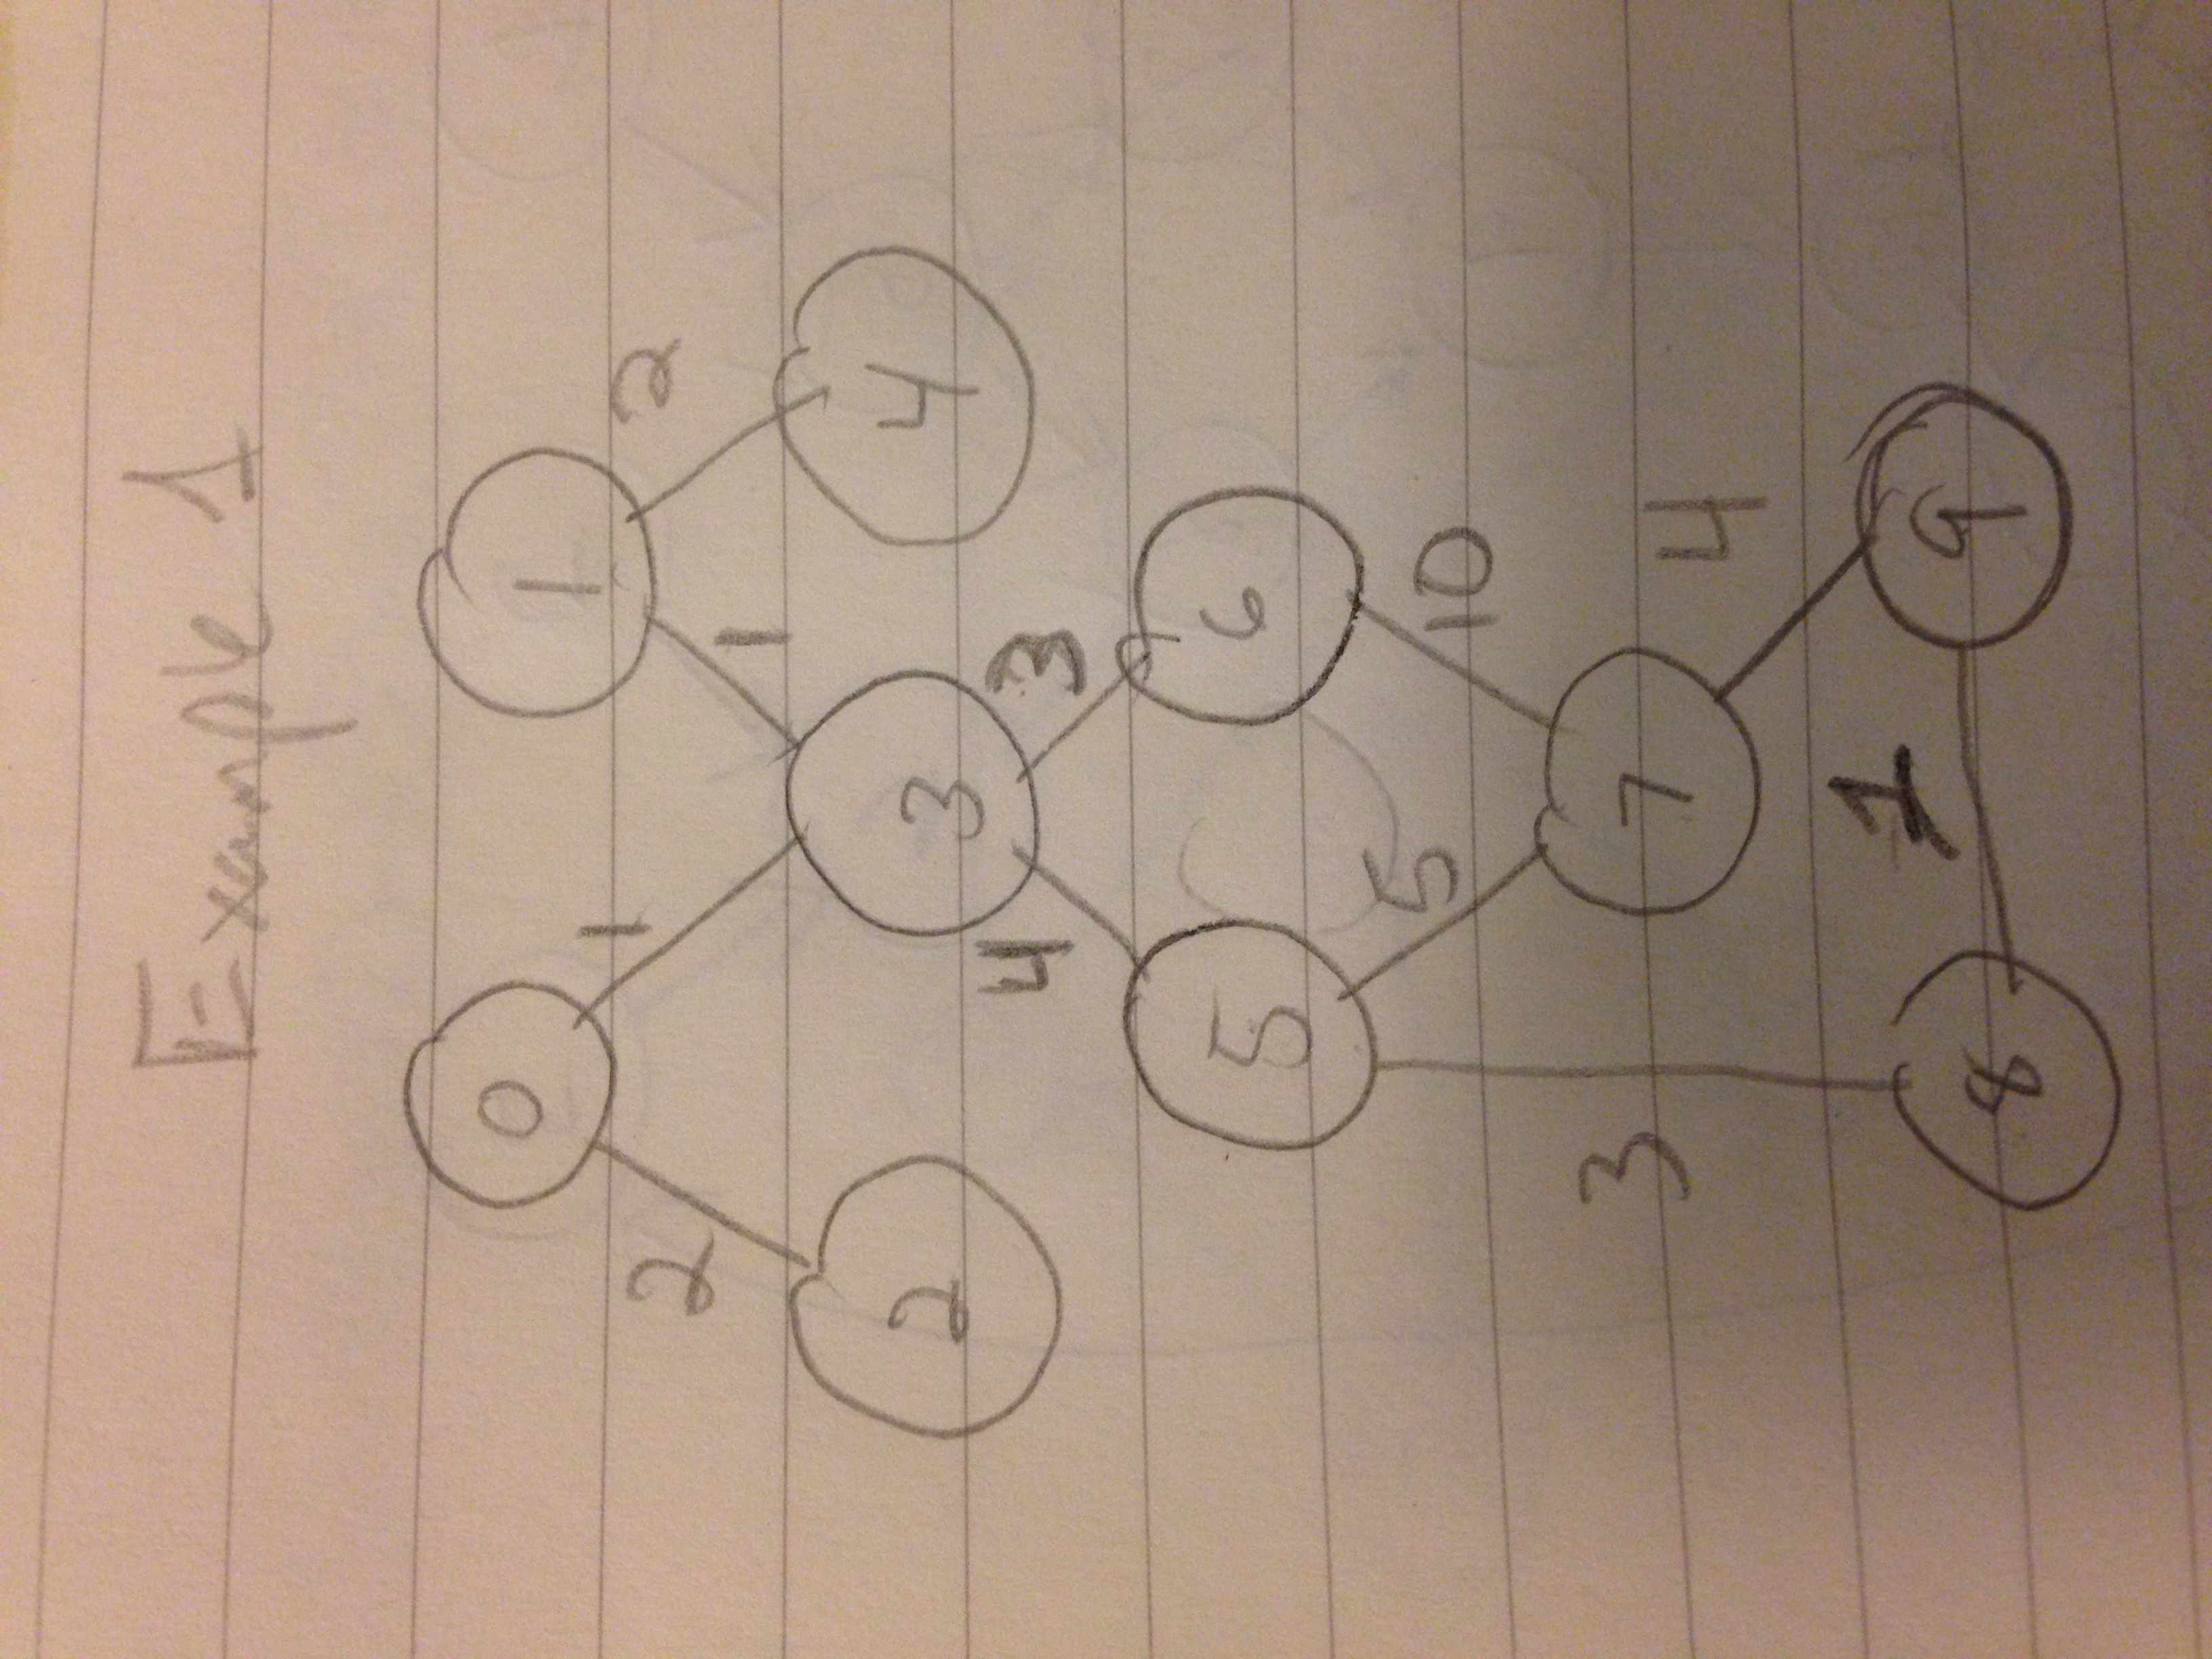 Example 1
0 1
2 1 2
1
2 3 4
4 3
5 6
5 10
3 7 4
1
8 9